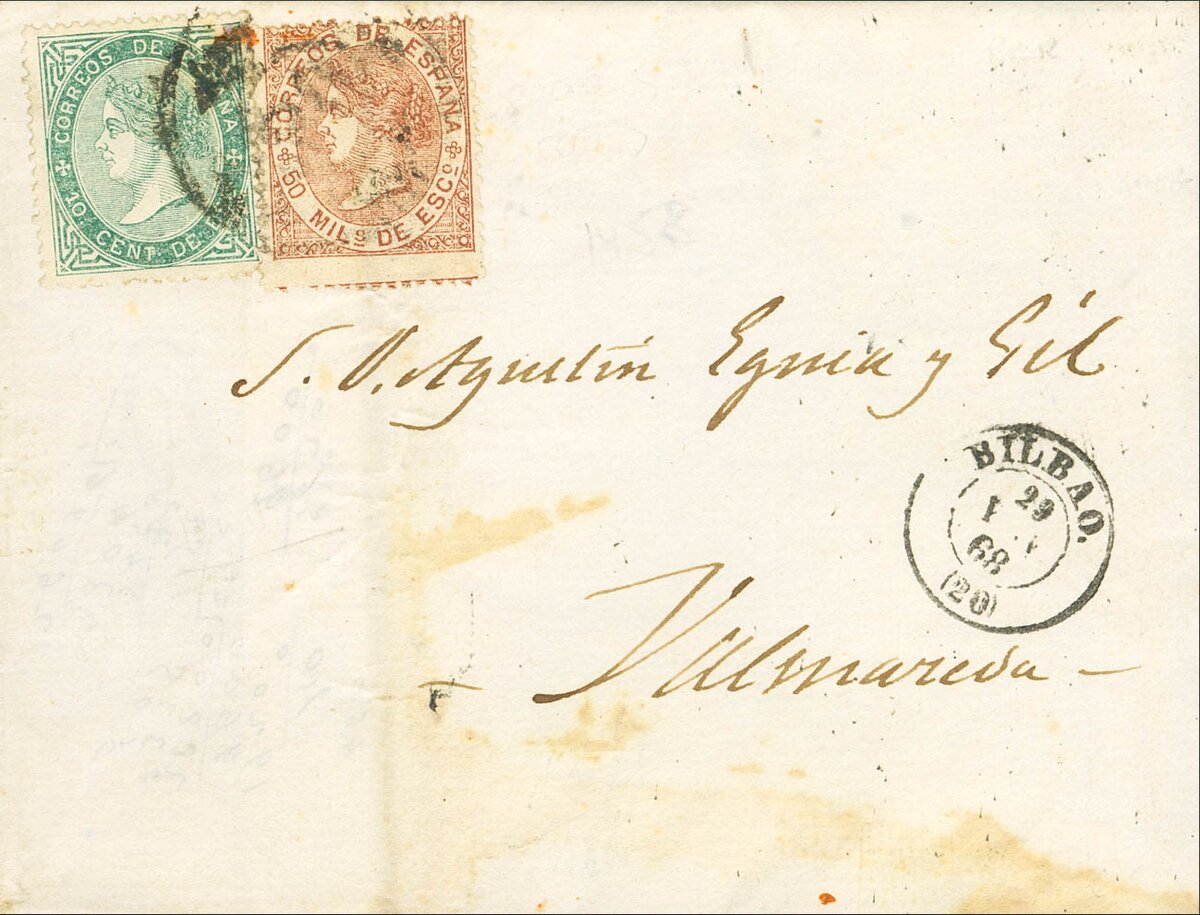 CORREOS DE
10 CENT. DE
CORREOS DE ESPAÑA
50 MILS DE ESCO
S. D. Agustin Eguia y Gil
BILBAO.
29
68
(20)
Valmaseda